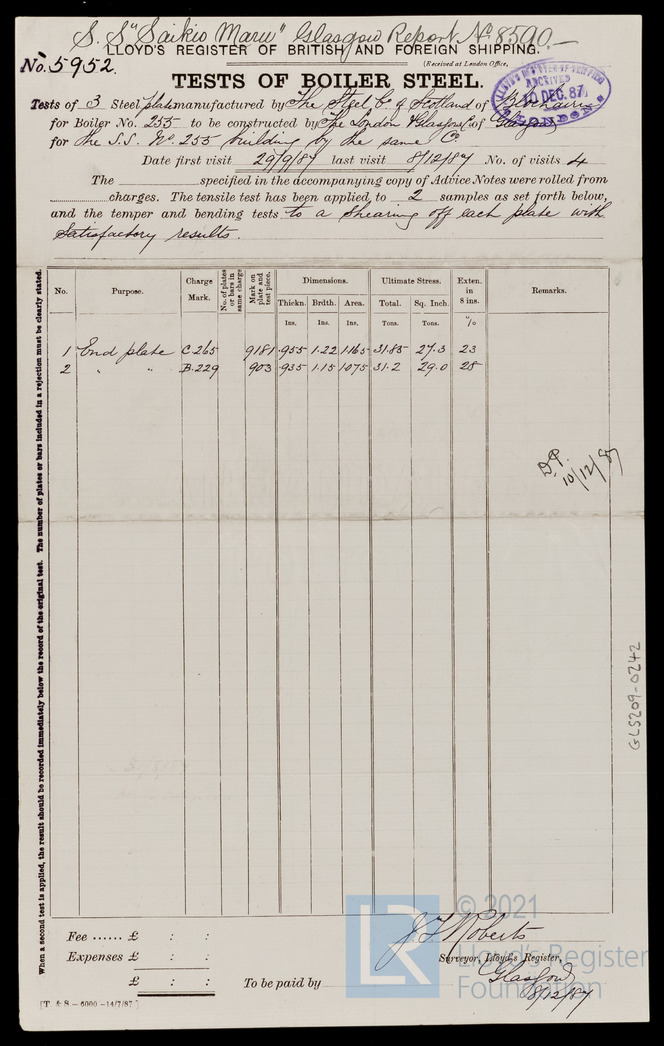 S. S "Saikio Maru" Glasgow Report No 8590
LLOYD'S REGISTER OF BRITISH AND FOREIGN SHIPPING.
No. 5952.
(Received at London Office,
TESTS OF BOILER STEEL.
RECEIVED
10 DEC. 87
LONDON
Tests of 3 Steel plates manufactured by The Steel Co of Scotland of
for Boiler No. 255 to be constructed by The London & Glasgow Co of Glasgow
for the S.S. No. 255 building by the same Co.
Date first visit 29/9/87 last visit 8/12/87 No. of visits 4
The specified in the accompanying copy of Advice Notes were rolled from
charges. The tensile test has been applied to 2 samples as set forth below,
and the temper and bending tests to a shearing off each plate with
satisfactory results.
When a second test is applied, the result should be recorded immediately below the record of the original test. The number of plates or bars included in a rejection must be clearly stated.
No. Purpose. Charge Mark. No. of plates or bars in same charge Mark on plate and test piece. Dimensions. Ultimate Stress. Exten. in 8 ins. Remarks.
Thickn. Brdth. Area. Total. Sq. Inch.
Ins. Ins. Ins. Tons. Tons. %
1 End plate C.265 9181 .955 1.22 1.165 31.85 27.3 23
2 " " B.229 903 .935 1.15 1.075 31.2 29.0 28
D.P.
10/12/87
GLS209-0242
© 2021
Lloyd's Register
Foundation
LR
Fee ...... £ : :
Expenses £ : :
£ : :
To be paid by
J T Roberts
Surveyor, Lloyd's Register,
Glasgow
8/12/87
[T. & S.—6000—14/7/87.]